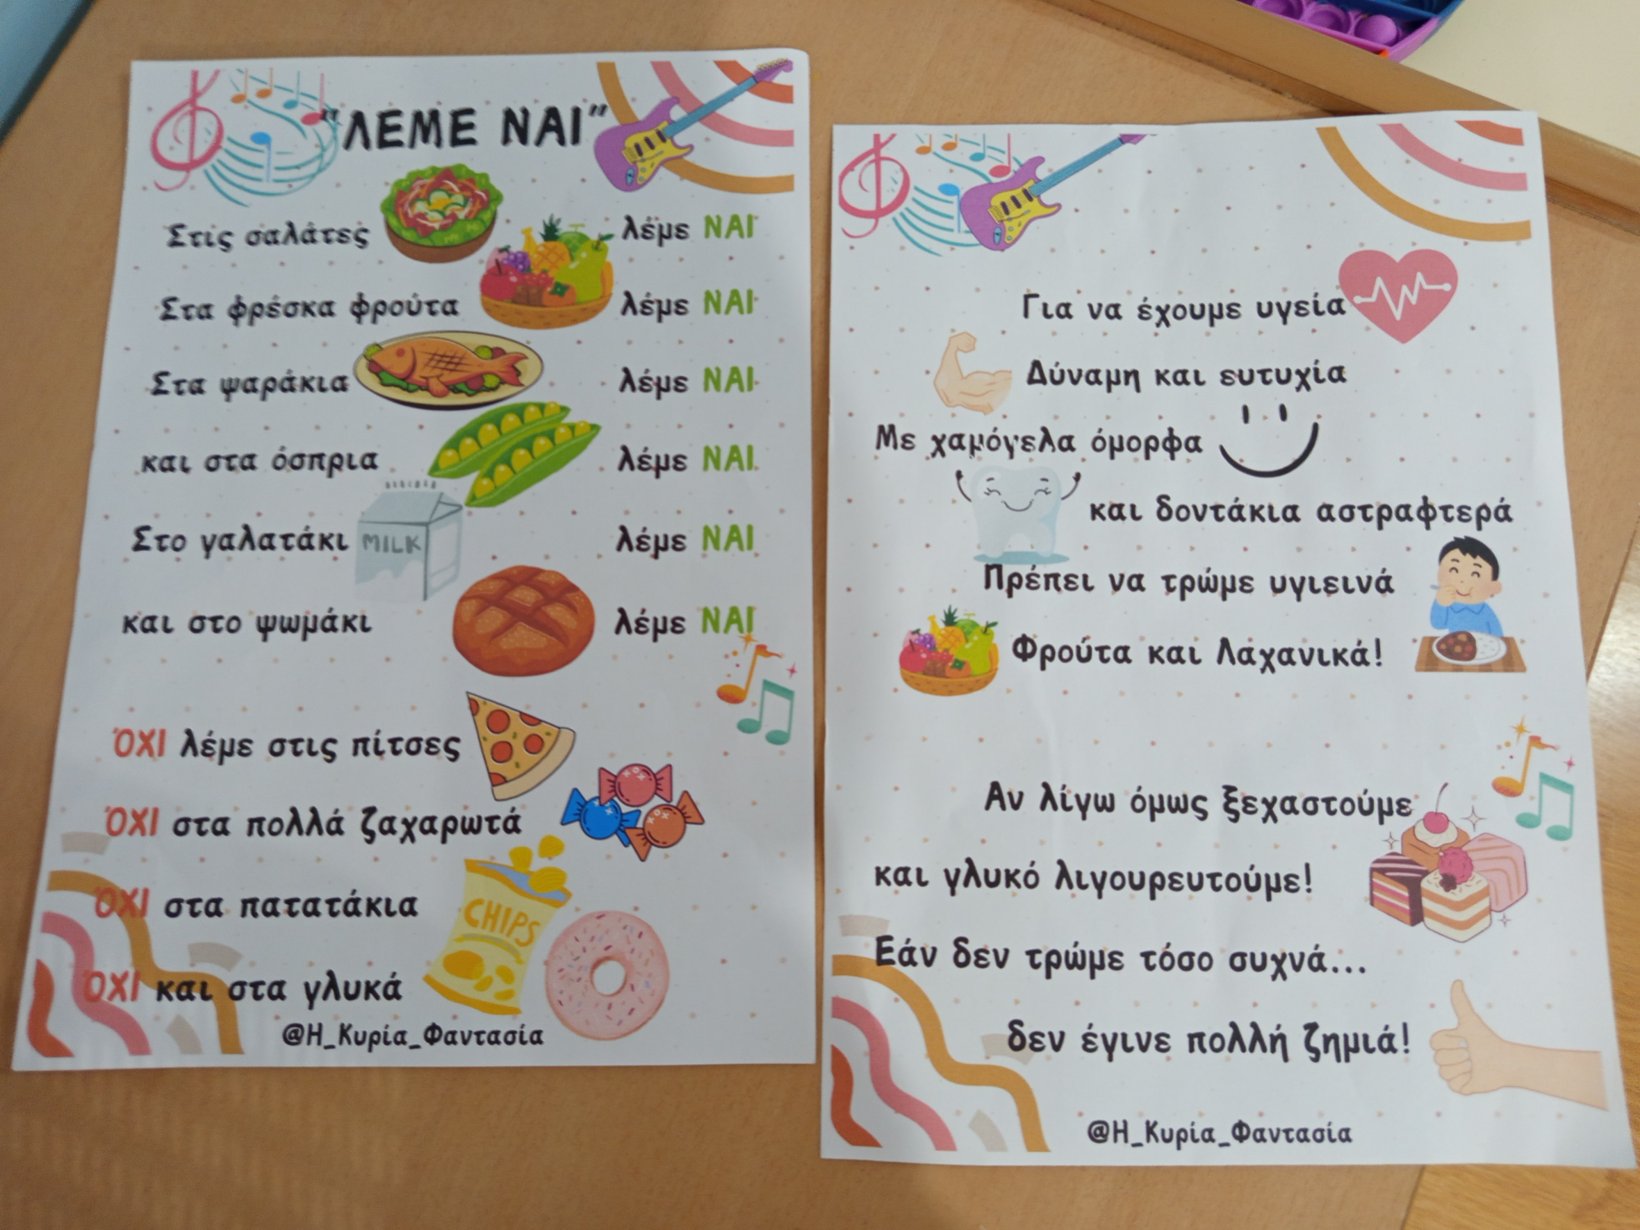 "ΛΕΜΕ ΝΑΙ"
Στις σαλάτες λέμε ΝΑΙ
Στα φρέσκα φρούτα λέμε ΝΑΙ
Στα ψαράκια λέμε ΝΑΙ
και στα όσπρια λέμε ΝΑΙ
Στο γαλατάκι MILK λέμε ΝΑΙ
και στο ψωμάκι λέμε ΝΑΙ
ΌΧΙ λέμε στις πίτσες
ΌΧΙ στα πολλά ζαχαρωτά
ΌΧΙ στα πατατάκια CHIPS
ΌΧΙ και στα γλυκά
@Η_Κυρία_Φαντασία
Για να έχουμε υγεία
Δύναμη και ευτυχία
Με χαμόγελα όμορφα
και δοντάκια αστραφτερά
Πρέπει να τρώμε υγιεινά
Φρούτα και Λαχανικά!
Αν λίγω όμως ξεχαστούμε
και γλυκό λιγουρευτούμε!
Εάν δεν τρώμε τόσο συχνά...
δεν έγινε πολλή ζημιά!
@Η_Κυρία_Φαντασία